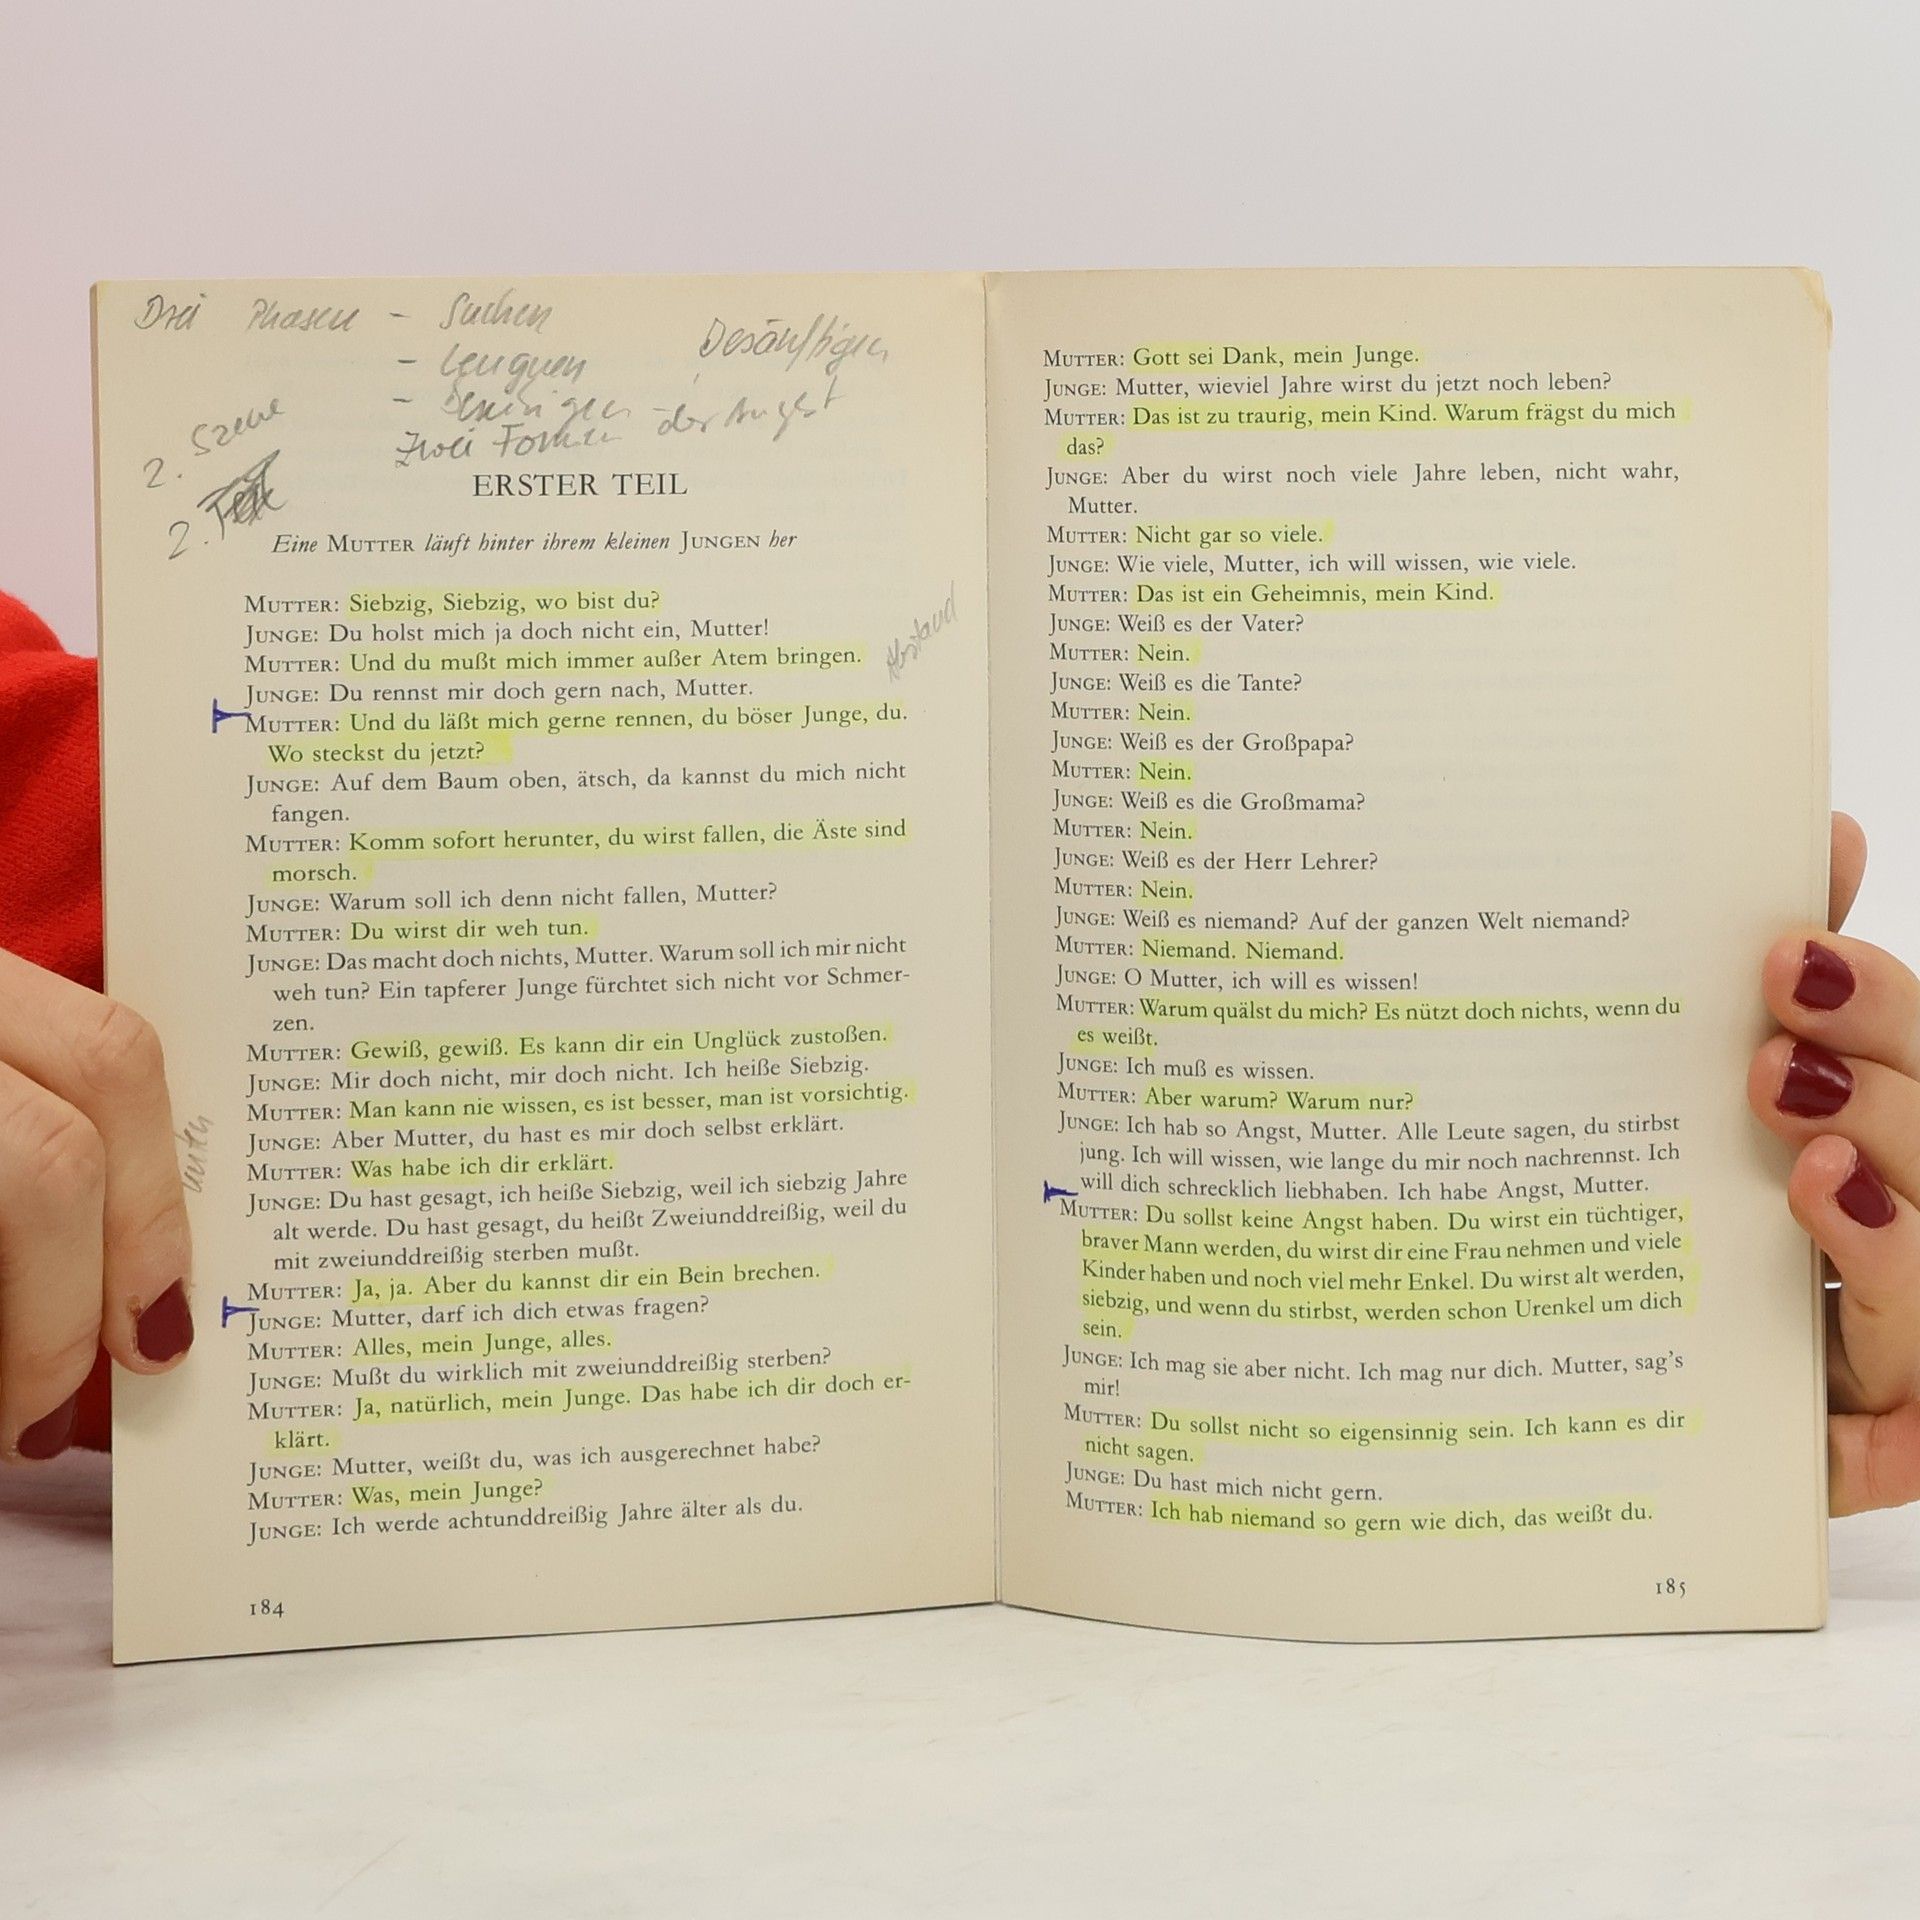 Drei Phasen - Suchen
- leugnen
Besänftigen
-
Zwei Formen der Angst
2. Szene
2.
ERSTER TEIL
Eine MUTTER läuft hinter ihrem kleinen JUNGEN her
MUTTER: Siebzig, Siebzig, wo bist du?
JUNGE: Du holst mich ja doch nicht ein, Mutter!
MUTTER: Und du mußt mich immer außer Atem bringen.
Abstand
JUNGE: Du rennst mir doch gern nach, Mutter.
MUTTER: Und du läßt mich gerne rennen, du böser Junge, du.
Wo steckst du jetzt?
JUNGE: Auf dem Baum oben, ätsch, da kannst du mich nicht
fangen.
MUTTER: Komm sofort herunter, du wirst fallen, die Äste sind
morsch.
JUNGE: Warum soll ich denn nicht fallen, Mutter?
MUTTER: Du wirst dir weh tun.
JUNGE: Das macht doch nichts, Mutter. Warum soll ich mir nicht
weh tun? Ein tapferer Junge fürchtet sich nicht vor Schmer-
zen.
MUTTER: Gewiß, gewiß. Es kann dir ein Unglück zustoßen.
JUNGE: Mir doch nicht, mir doch nicht. Ich heiße Siebzig.
MUTTER: Man kann nie wissen, es ist besser, man ist vorsichtig.
JUNGE: Aber Mutter, du hast es mir doch selbst erklärt.
MUTTER: Was habe ich dir erklärt.
JUNGE: Du hast gesagt, ich heiße Siebzig, weil ich siebzig Jahre
alt werde. Du hast gesagt, du heißt Zweiunddreißig, weil du
mit zweiunddreißig sterben mußt.
MUTTER: Ja, ja. Aber du kannst dir ein Bein brechen.
JUNGE: Mutter, darf ich dich etwas fragen?
MUTTER: Alles, mein Junge, alles.
JUNGE: Mußt du wirklich mit zweiunddreißig sterben?
MUTTER: Ja, natürlich, mein Junge. Das habe ich dir doch er-
klärt.
JUNGE: Mutter, weißt du, was ich ausgerechnet habe?
MUTTER: Was, mein Junge?
JUNGE: Ich werde achtunddreißig Jahre älter als du.
184
MUTTER: Gott sei Dank, mein Junge.
JUNGE: Mutter, wieviel Jahre wirst du jetzt noch leben?
MUTTER: Das ist zu traurig, mein Kind. Warum frägst du mich
das?
JUNGE: Aber du wirst noch viele Jahre leben, nicht wahr,
Mutter.
MUTTER: Nicht gar so viele.
JUNGE: Wie viele, Mutter, ich will wissen, wie viele.
MUTTER: Das ist ein Geheimnis, mein Kind.
JUNGE: Weiß es der Vater?
MUTTER: Nein.
JUNGE: Weiß es die Tante?
MUTTER: Nein.
JUNGE: Weiß es der Großpapa?
MUTTER: Nein.
JUNGE: Weiß es die Großmama?
MUTTER: Nein.
JUNGE: Weiß es der Herr Lehrer?
MUTTER: Nein.
JUNGE: Weiß es niemand? Auf der ganzen Welt niemand?
MUTTER: Niemand. Niemand.
JUNGE: O Mutter, ich will es wissen!
MUTTER: Warum quälst du mich? Es nützt doch nichts, wenn du
es weißt.
JUNGE: Ich muß es wissen.
MUTTER: Aber warum? Warum nur?
JUNGE: Ich hab so Angst, Mutter. Alle Leute sagen, du stirbst
jung. Ich will wissen, wie lange du mir noch nachrennst. Ich
will dich schrecklich liebhaben. Ich habe Angst, Mutter.
MUTTER: Du sollst keine Angst haben. Du wirst ein tüchtiger,
braver Mann werden, du wirst dir eine Frau nehmen und viele
Kinder haben und noch viel mehr Enkel. Du wirst alt werden,
siebzig, und wenn du stirbst, werden schon Urenkel um dich
sein.
JUNGE: Ich mag sie aber nicht. Ich mag nur dich. Mutter, sag's
mir!
MUTTER: Du sollst nicht so eigensinnig sein. Ich kann es dir
nicht sagen.
JUNGE: Du hast mich nicht gern.
MUTTER: Ich hab niemand so gern wie dich, das weißt du.
185